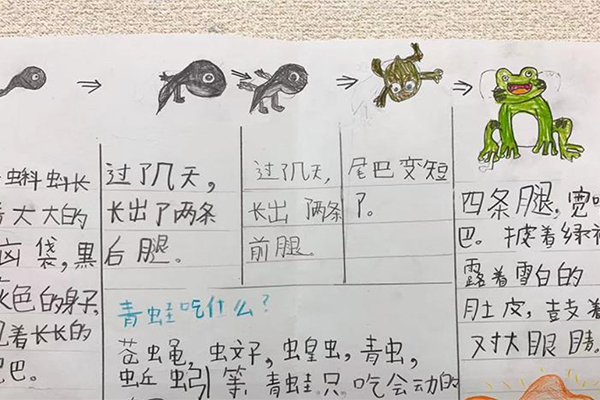 蝌蚪长
着大大的
袋，黑
灰色的身子，
着长长的
巴。
过了几天，
长出了两条
后腿。
过了几天，
长出了两条
前腿。
尾巴变短
了。
四条腿，宽
巴。披着绿
露着雪白的
肚皮，鼓着
对大眼睛。
青蛙吃什么？
苍蝇，蚊子，蝗虫，青虫，
蚯蚓等，青蛙只吃会动的